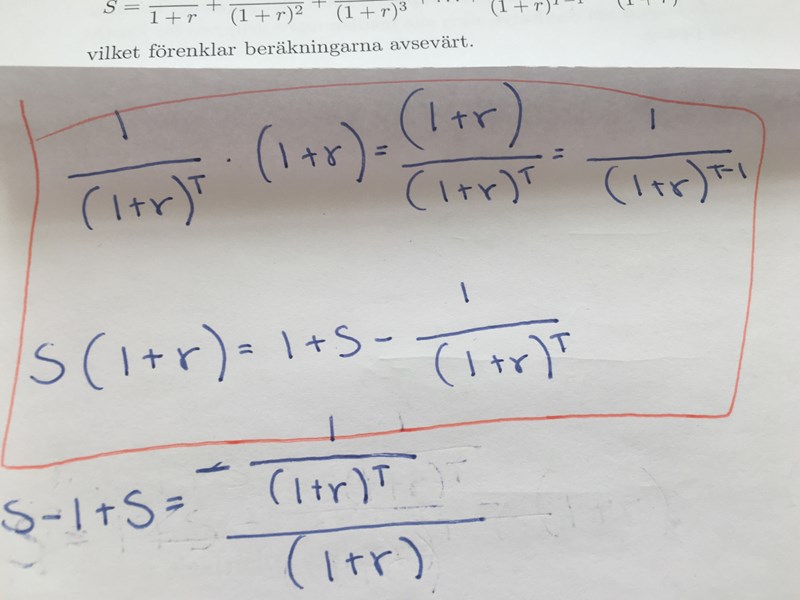 S = 1+r + (1+r)² + (1+r)³ + ... (1+r)ᵀ⁻¹
vilket förenklar beräkningarna avsevärt.
1/(1+r)ᵀ · (1+r) = (1+r)/(1+r)ᵀ = 1/(1+r)ᵀ⁻¹
S(1+r) = 1+S - 1/(1+r)ᵀ
S-1+S = (- 1/(1+r)ᵀ)/(1+r)